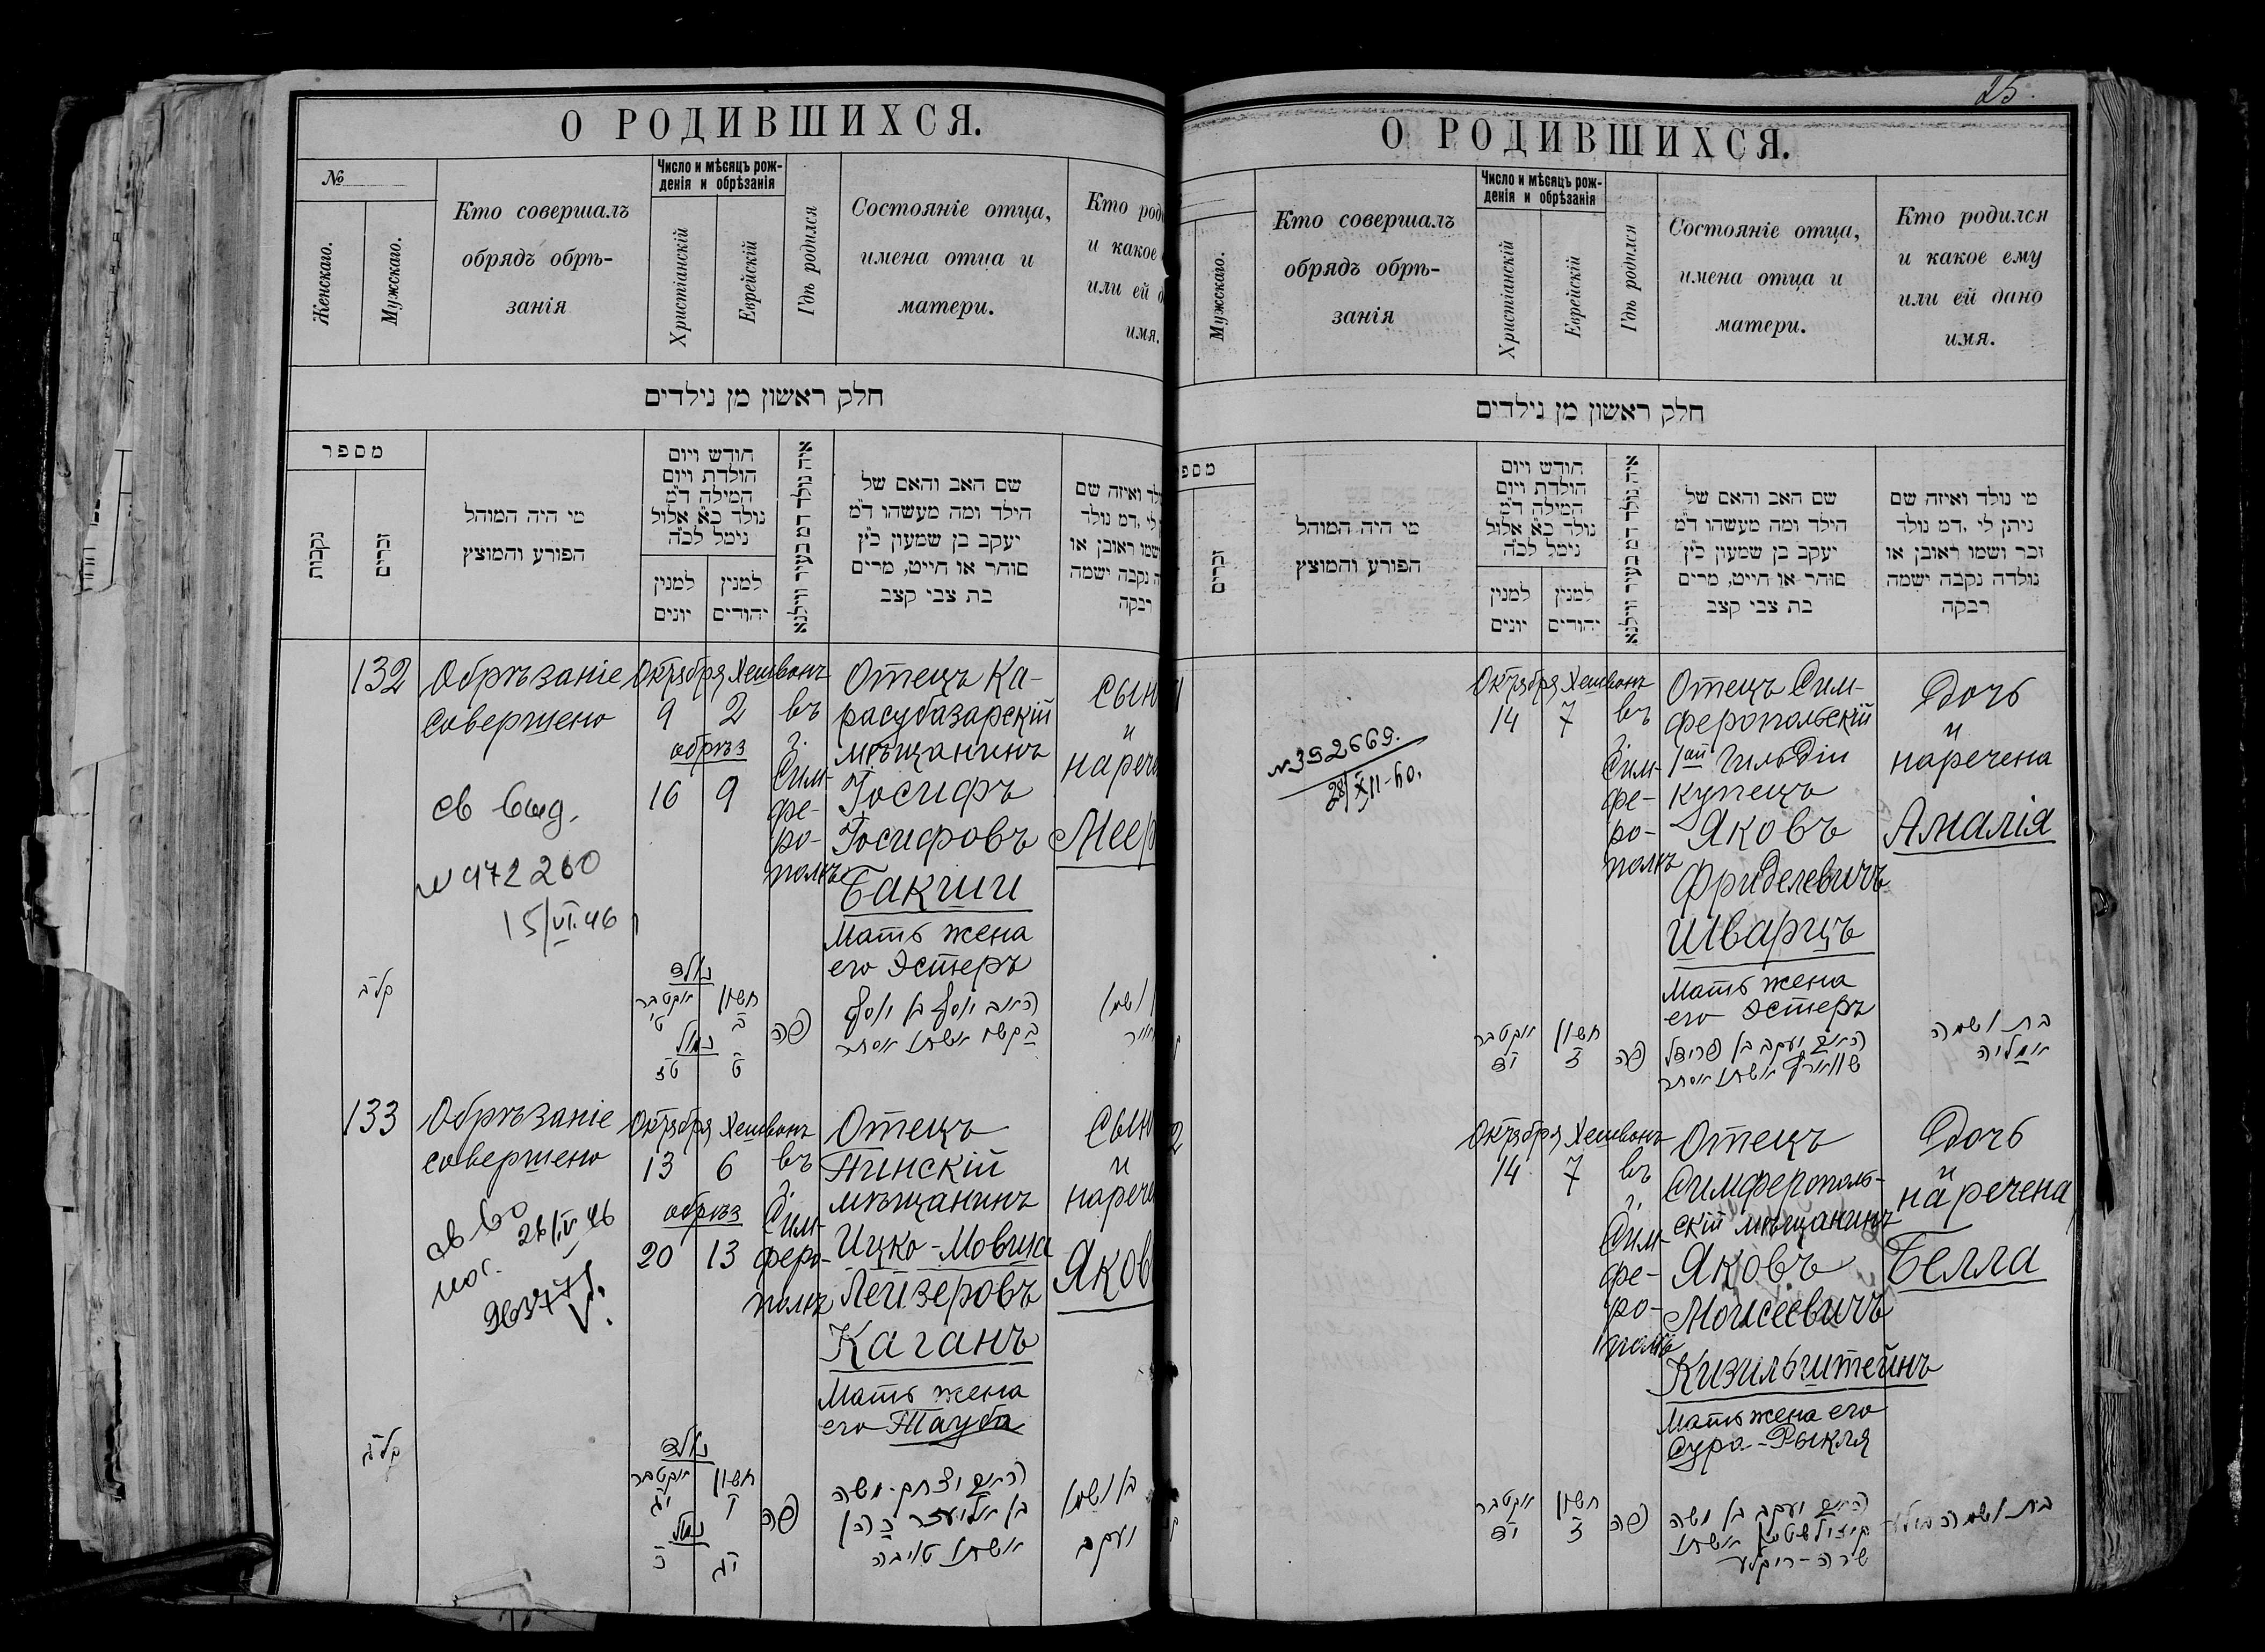 О РОДИВШИХСЯ.
№
Женскаго.
Мужскаго.
Кто совершалъ
обрядъ обрѣ-
занія
Число и мѣсяцъ рож-
денія и обрѣзанія
Христіанскій
Еврейскій
Гдѣ родился
Состояніе отца,
имена отца и
матери.
Кто род
и какое
или ей д
имя.
חלק ראשון מן נילדים
מספר
נקבות
זכרים
מי היה המוהל
הפורע והמוצץ
חודש ויום
הולדת ויום
המילה ד״מ
נולד כ״א אלול
נימל לכ״ה
למנין
יונים
למנין
יהודים
איה נולד דמ בעיר ווילנא
שם האב והאם של
הילד ומה מעשהו ד״מ
יעקב בן שמעון כ״ץ
סוחר או חייט, מרים
בת צבי קצב
לד ואיזה שם
לי ,דמ נולד
שמו ראובן או
ה נקבה ישמה
רבקה
132
Обрѣзаніе
совершено
св выд.
N 972260
15/VI.46
Октября Хешвонъ
9 2
обрѣз
16 9
въ
г.
Сим-
фе-
ро-
полѣ
Отецъ Ка-
расубазарскій
мѣщанинъ
Іосифъ
Іосифовъ
Бакши
Мать жена
его Эстеръ
Сын
и
нарече
Меер
קל״ב
נולד
אוקטבר חשון
ט׳ ב
נמול
טז ט
פה
האב יוסף בן יוסף
בקשי אשתו אסתר
ושמו
133
Обрѣзаніе
совершено
26/IV 46
963771
Октября Хешвонъ
13 6
обрѣз
20 13
въ
г.
Сим-
феро-
полѣ
Отецъ
Пинскій
мѣщанинъ
Ицко-Мовша
Лейзеровъ
Каганъ
Мать жена
его Тауба
Сын
и
нарече
Яков
קל״ג
נולד
אוקטבר חשון
יג ו
נמול
כ יג
פה
האב יצחק-משה
בן אליעזר כהן
אשתו טויבה
בן ושמו
יעקב
25.
О РОДИВШИХСЯ.
Мужскаго.
Кто совершалъ
обрядъ обрѣ-
занія
Число и мѣсяцъ рож-
денія и обрѣзанія
Христіанскій
Еврейскій
Гдѣ родился
Состояніе отца,
имена отца и
матери.
Кто родился
и какое ему
или ей дано
имя.
חלק ראשון מן נילדים
מספ
זכרים
מי היה המוהל
הפורע והמוצץ
חודש ויום
הולדת ויום
המילה ד״מ
נולד כ״א אלול
נימל לכ״ה
למנין
יונים
למנין
יהודים
איה נולד דמ בעיר ווילנא
שם האב והאם של
הילד ומה מעשהו ד״מ
יעקב בן שמעון כ״ץ
סוחר או חייט, מרים
בת צבי קצב
מי נולד ואיזה שם
ניתן לי ,דמ נולד
זכר ושמו ראובן או
נולדה נקבה ישמה
רבקה
1
N392669.
28/XII-40.
Октября Хешвонъ
14 7
въ
г.
Сим-
фе-
ро-
полѣ
Отецъ Сим-
феропольскій
1ой Гильдіи
купецъ
Яковъ
Фриделевичъ
Шварцъ
Мать жена
его Эстеръ
Дочь
и
наречена
Амалія
אוקטבר חשון
יד ז
פה
האב יעקב בן פרידל
שווארץ אשתו אסתר
בת ושמה
אמליה
2
Октября Хешвонъ
14 7
въ
г.
Сим-
фе-
ро-
полѣ
Отецъ
Симферополь-
скій мѣщанинъ
Яковъ
Моисеевичъ
Кизильштейнъ
Мать жена его
Сура-Рыкля
Дочь
и
наречена
Белла
אוקטבר חשון
יד ז
פה
האב יעקב בן משה
קיזילשטיין אשתו
שרה-ריקלע
בת ושמה בילע